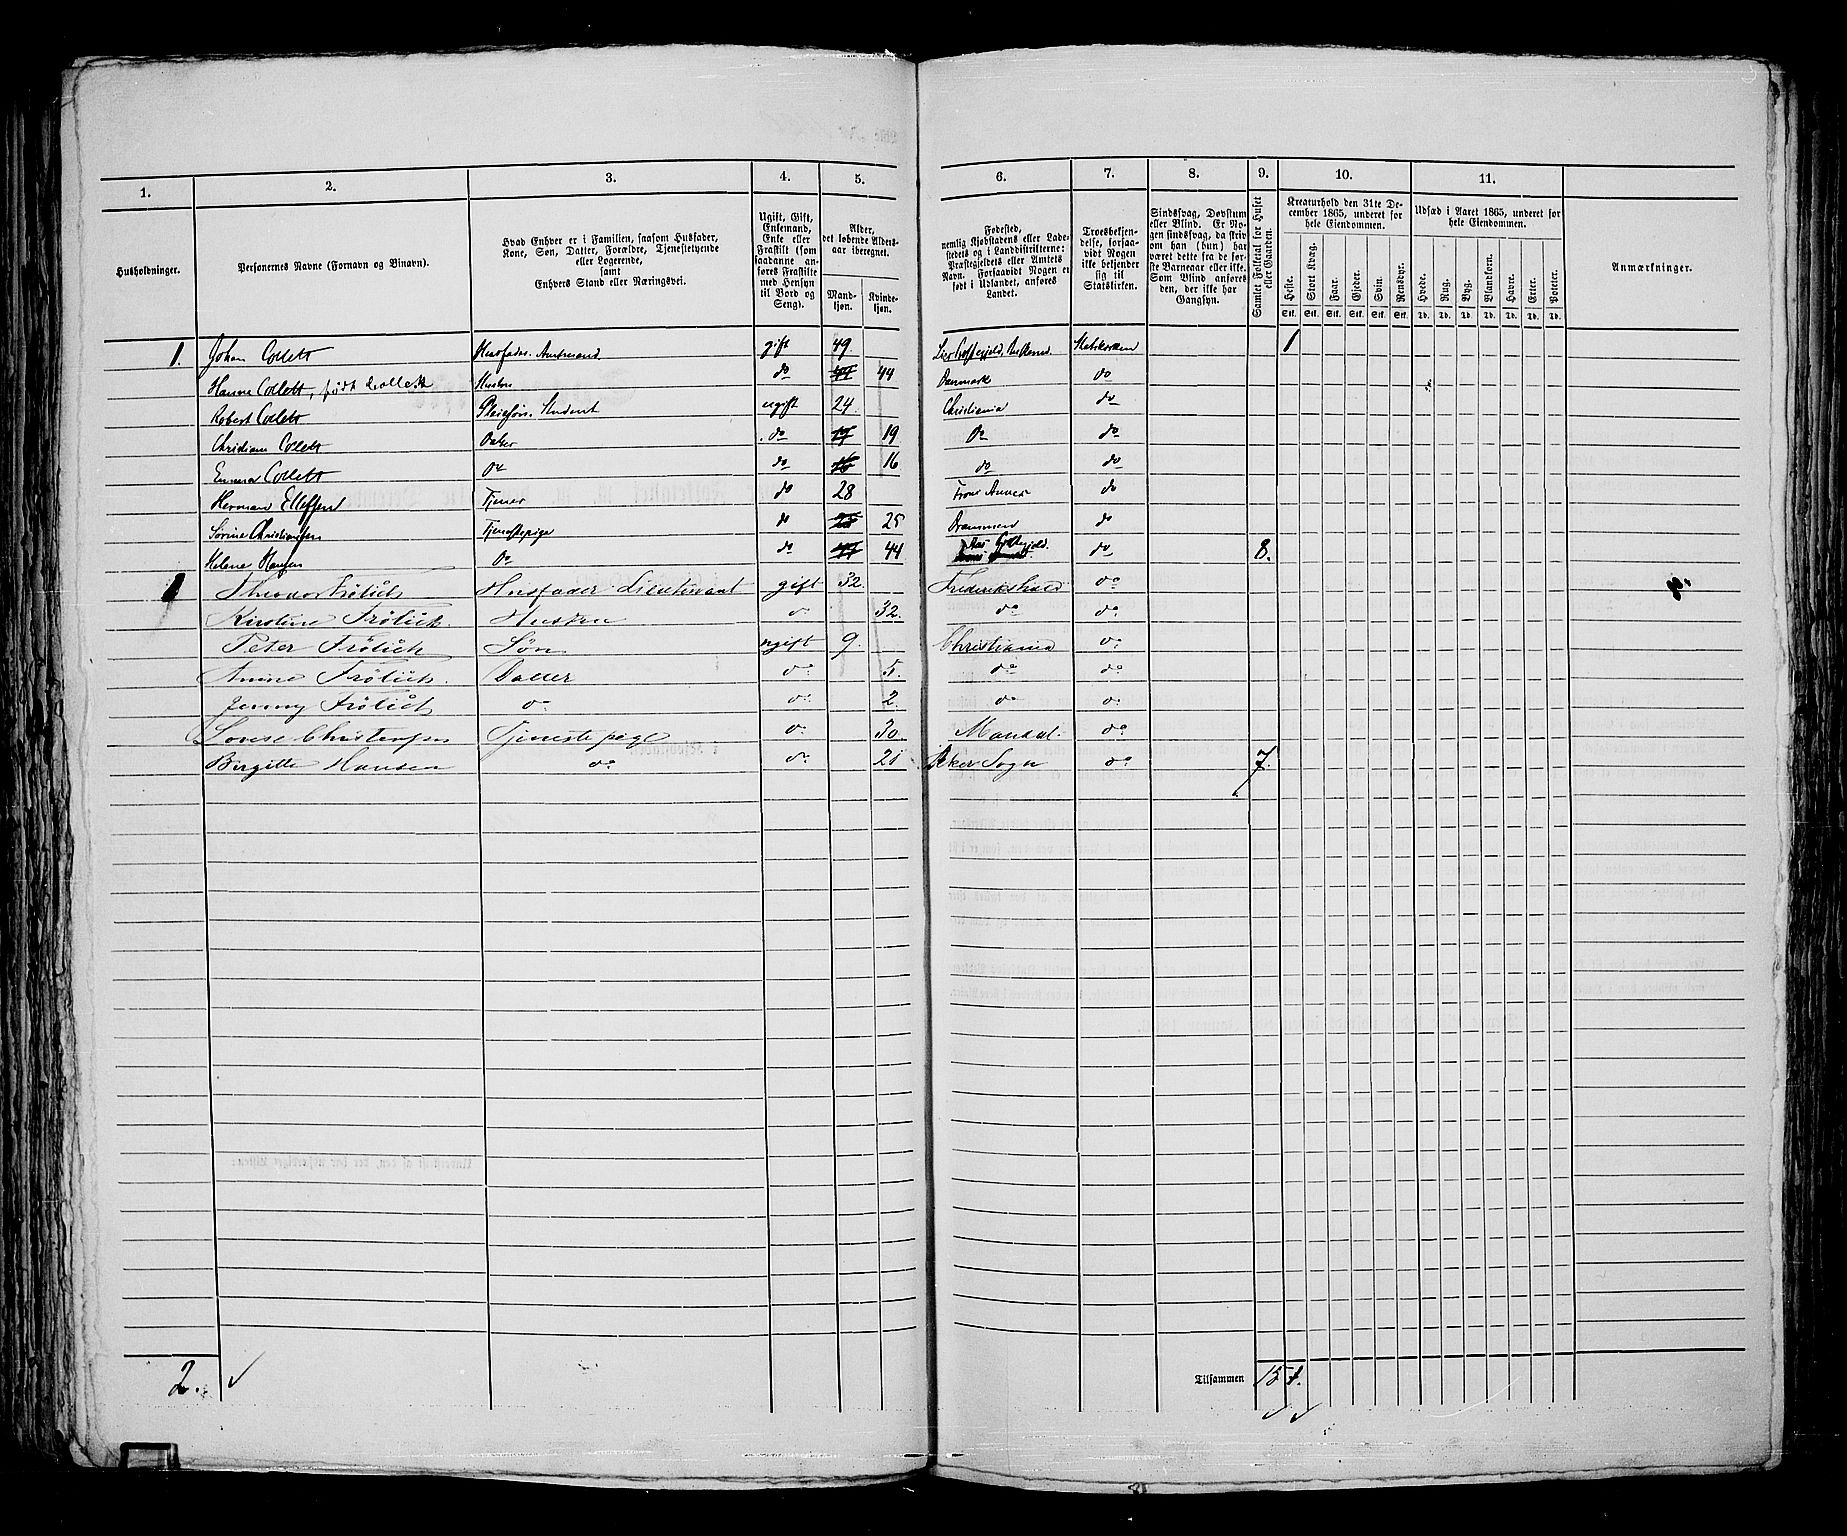 1. 2. 3. 4. 5. 6. 7. 8. 9. 10. 11.
Husholdninger.
Personernes Navne (Fornavn og Binavn).
Hvad Enhver er i Familien, saasom Husfader,
Kone, Søn, Datter, Forældre, Tjenestetyende
eller Logerende,
samt
Enhvers Stand eller Næringsvei.
Ugift, Gift,
Enkemand,
Enke eller
Fraskilt (som
saadanne an-
føres Fraskilte
med Hensyn
til Bord og
Seng).
Alder,
det løbende Alders-
aar iberegnet.
Mand-
kjøn.
Kvinde-
kjøn.
Fødested,
nemlig Kjøbstadens eller Lade-
stedets og i Landdistrikterne:
Præstegjeldets eller Amtets
Navn. Forsaavidt Nogen er
født i Udlandet, anføres
Landet.
Troesbekjen-
delse, forsaa-
vidt Nogen
ikke bekjender
sig til
Statskirken.
Sindssvag, Døvstum
eller Blind. Er No-
gen sindssvag, da skriv
om han (hun) har
været dette fra de før-
ste Barneaar eller ikke.
Som Blind anføres
den, der ikke har
Gangsyn.
Samlet Folketal for Huset
eller Gaarden.
Kreaturhold den 31te De-
cember 1865, underet for
hele Eiendommen.
Heste. Stort Kvæg. Faar. Gjeder. Svin. Rensdyr.
Stk. Stk. Stk. Stk. Stk. Stk.
Udsæd i Aaret 1865, underet for
hele Eiendommen.
Hvede. Rug. Byg. Blandkorn. Havre. Erter. Poteter.
Td. Td. Td. Td. Td. Td. Td.
Anmærkninger.
1. Johan Collett Husfader. Amtmand gift 49 Statskirken 1
Hanne Collett, født Collett Hustru do 44 44 Danmark do
Robert Collett Pleiesøn. Student ugift 24 Christiania do
Christiane Collett Datter do 19 Do do
Emma Collett Do do 16 16 do do
Herman Ellefsen Tjener do 28 do
Sørine Christiansen Tjenestepige do 25 25 Drammen do
Helene Hansen Do do 44 44 do 8.
1 Theodor Frølich Husfader Lieutenant gift 32. Frederikshald do
Kirstine Frølich. Hustru do 32. do do
Peter Frølich Søn ugift 9. Christiania do
Amine Frølich. Datter do 5. do do
Jenny Frølich do do 2. do do
Lovise Christensen Tjenestepige do 30. Mandal do
Birgitte Hansen do do 21 Aker Sogn do 7.
2. Tilsammen 15 1.